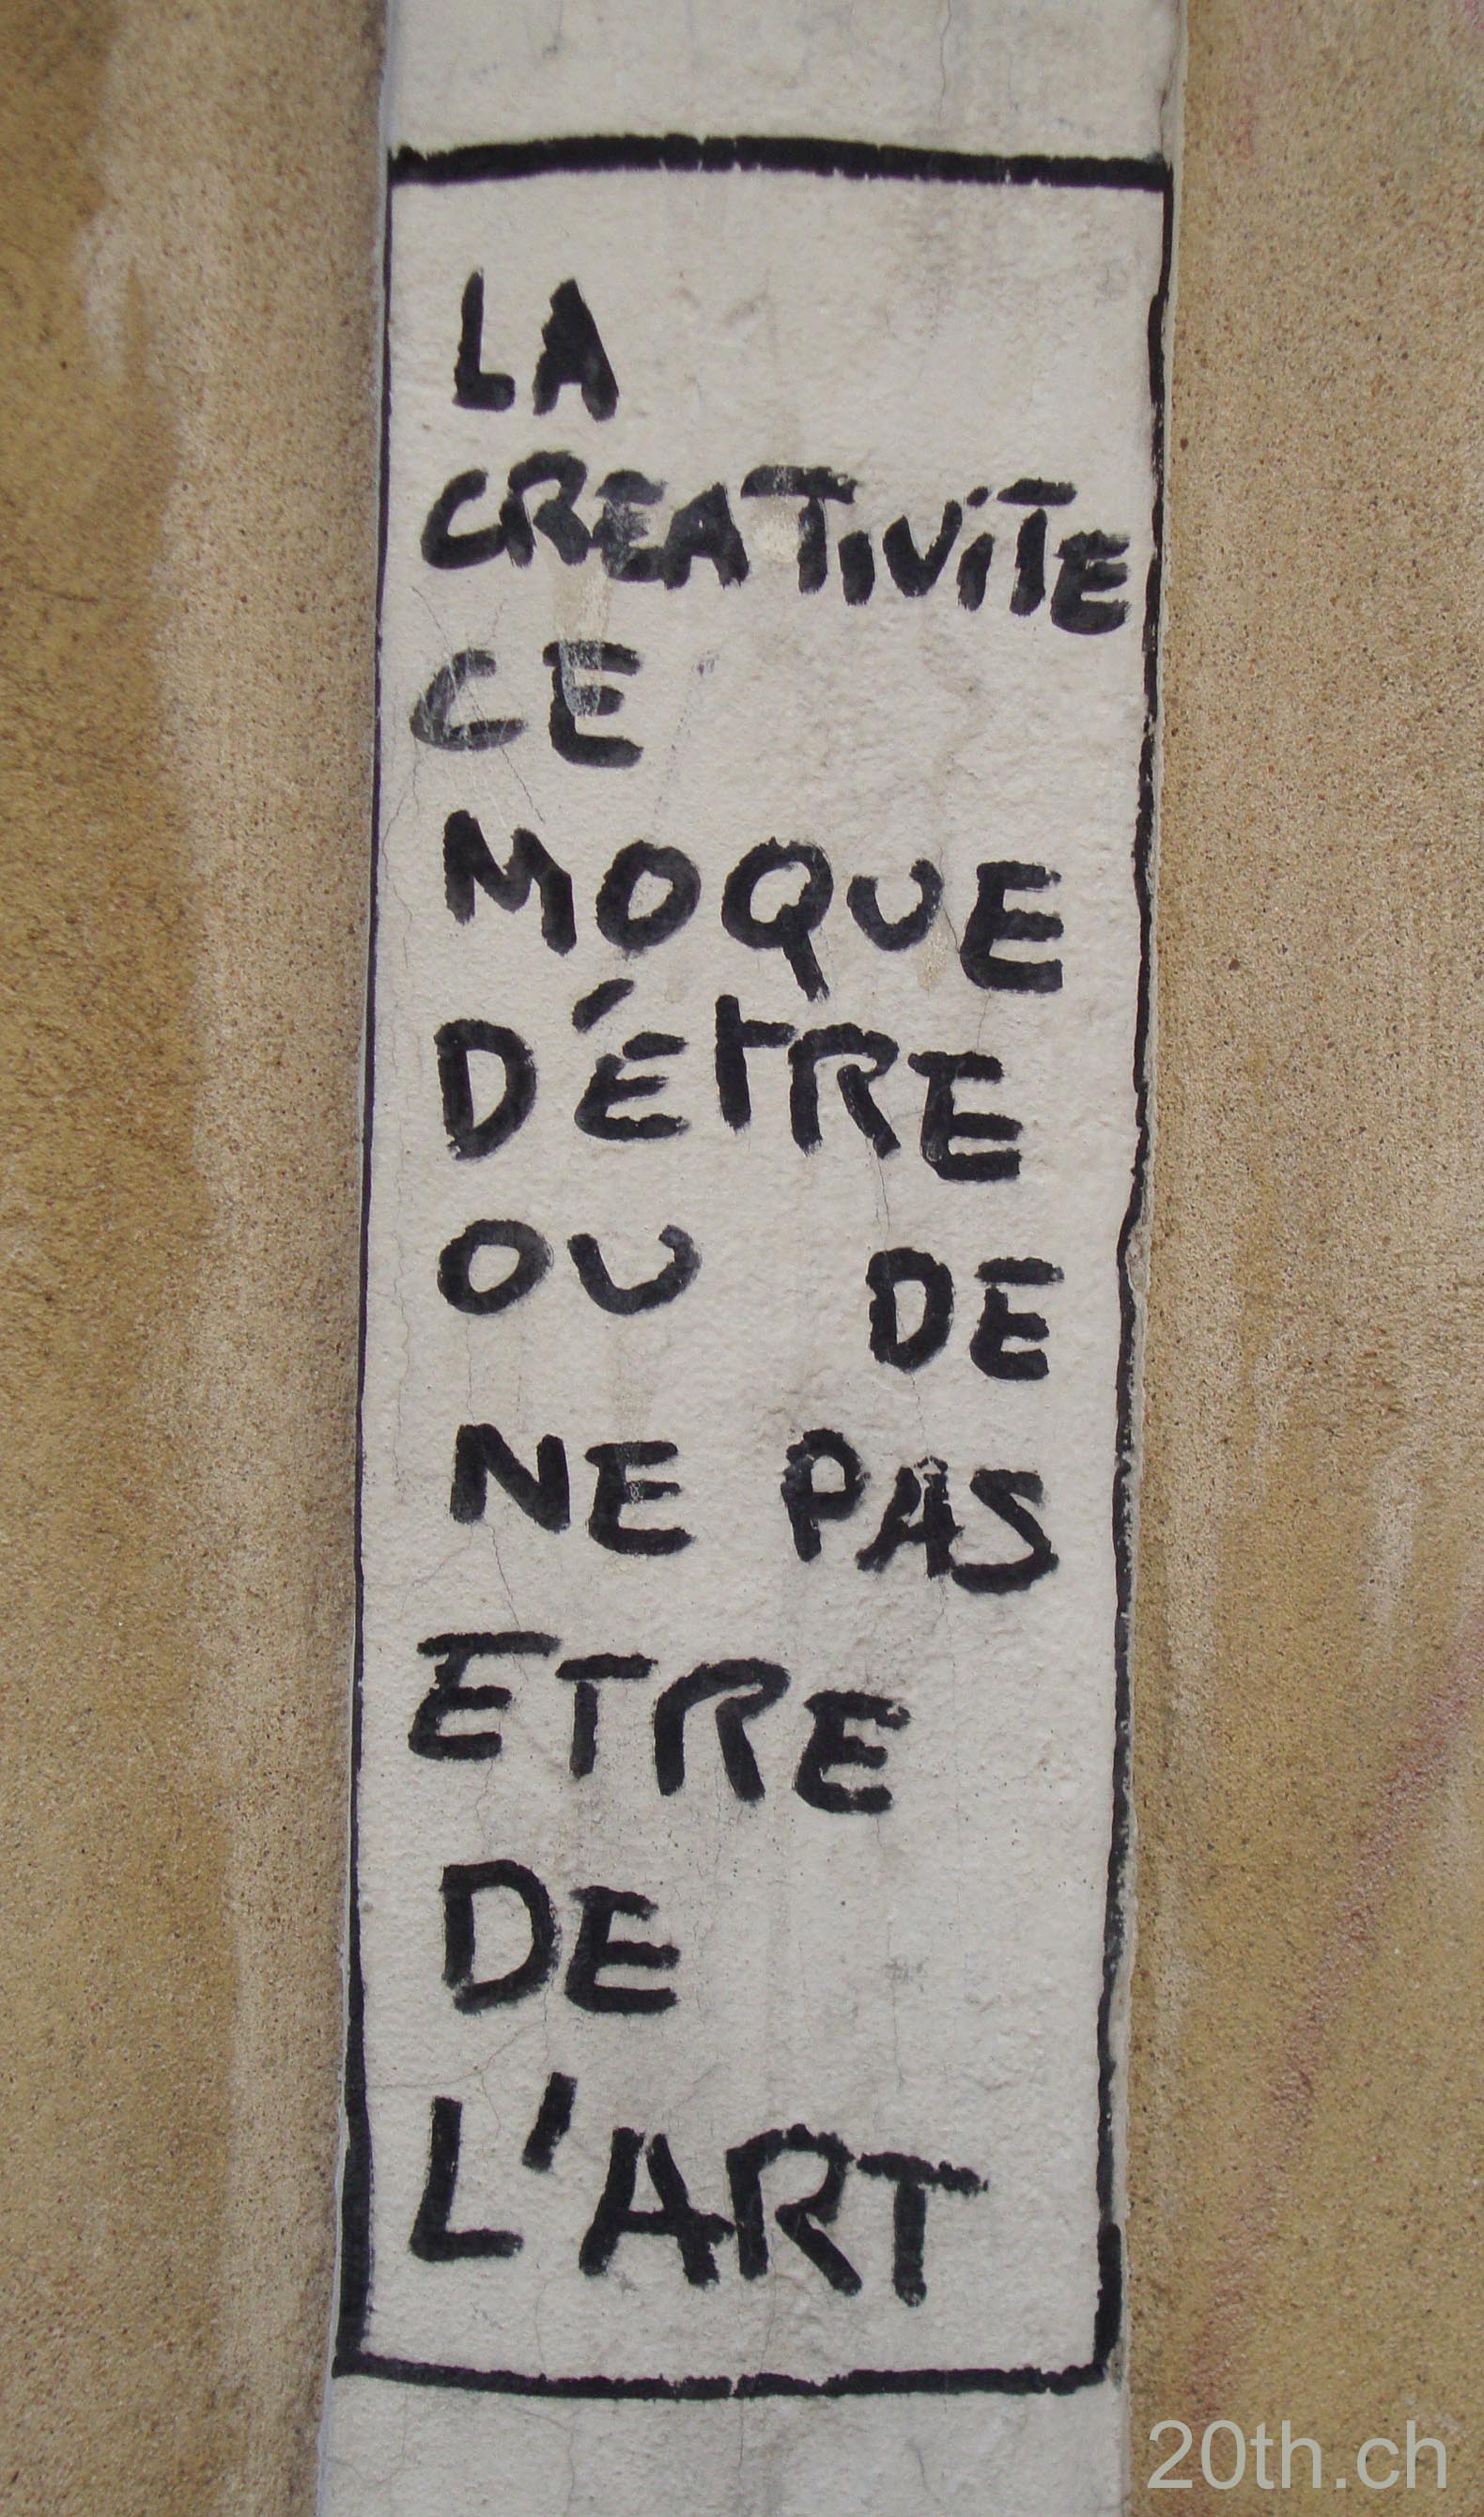 LA
CREATIVITE
CE
MOQUE
D'ÉTRE
OU DE
NE PAS
ETRE
DE
L'ART
20th.ch